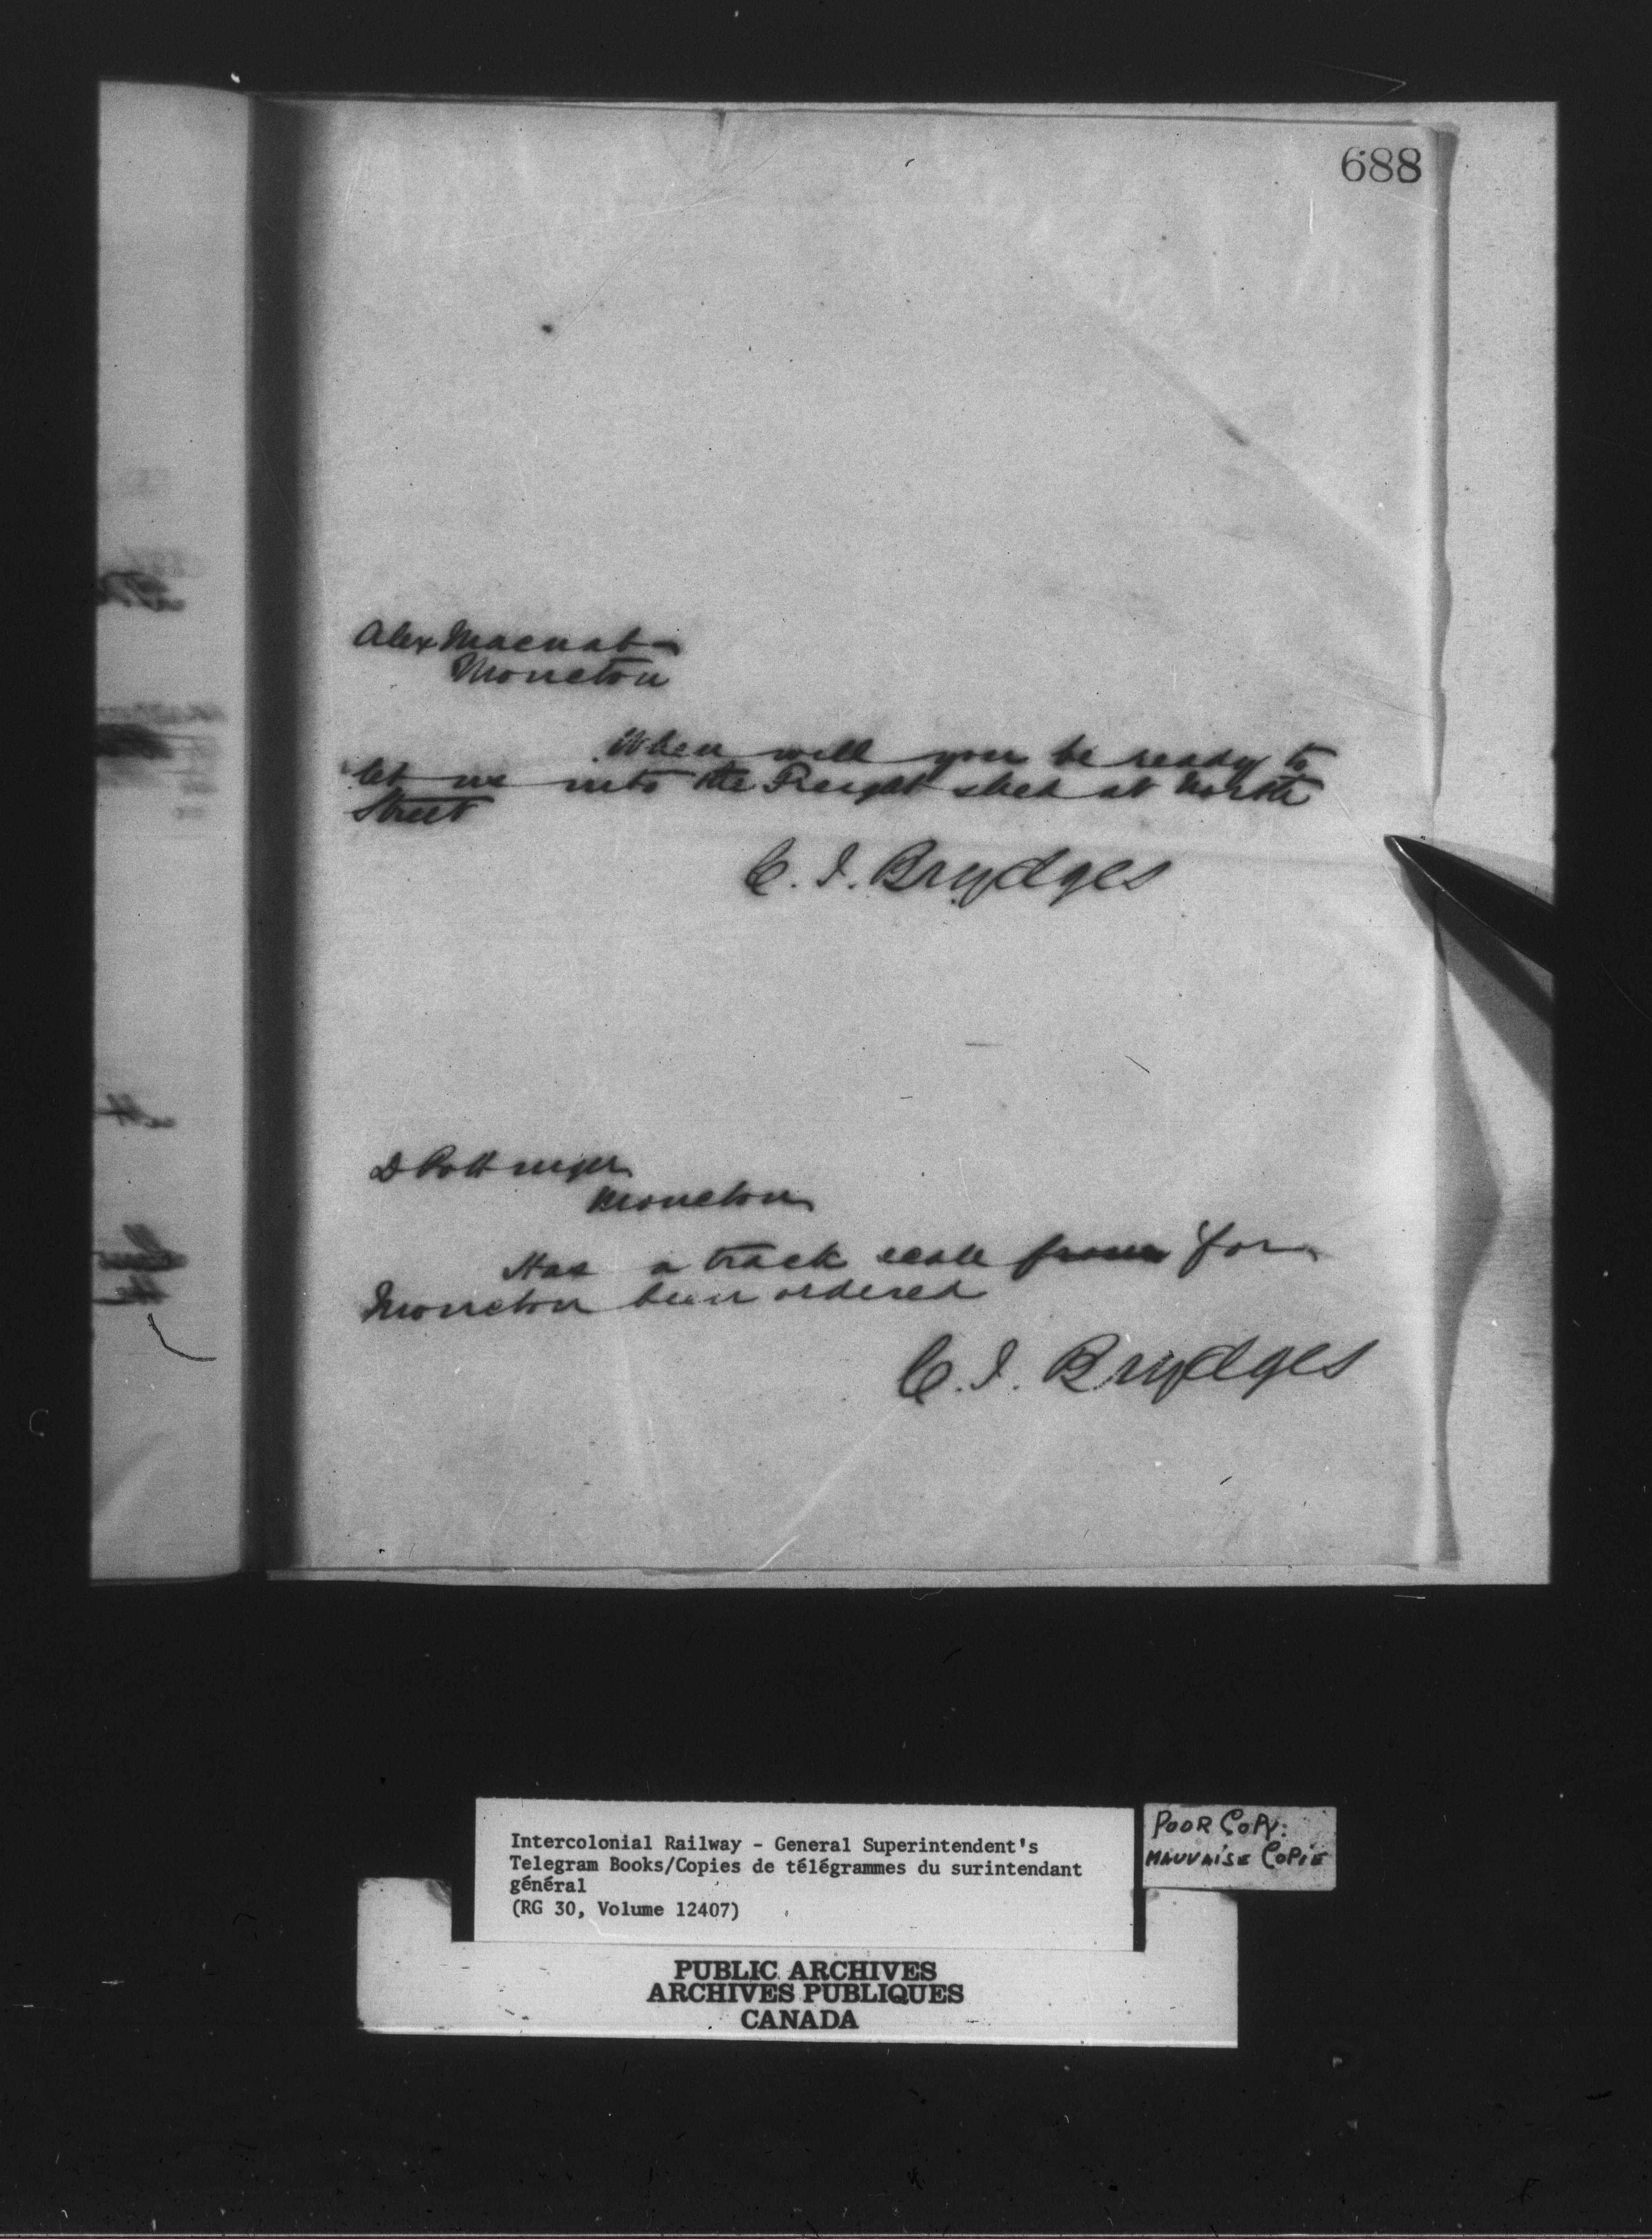 688
Alex Macnab
Moncton
When will you be ready to
let us into the Freight shed at North
Street
C. J. Brydges
D Pottinger
Moncton
Has a track scale from for
Moncton been ordered
C. J. Brydges
Intercolonial Railway - General Superintendent's
Telegram Books/Copies de télégrammes du surintendant
général
(RG 30, Volume 12407)
POOR COPY:
MAUVAISE COPIE
PUBLIC ARCHIVES
ARCHIVES PUBLIQUES
CANADA